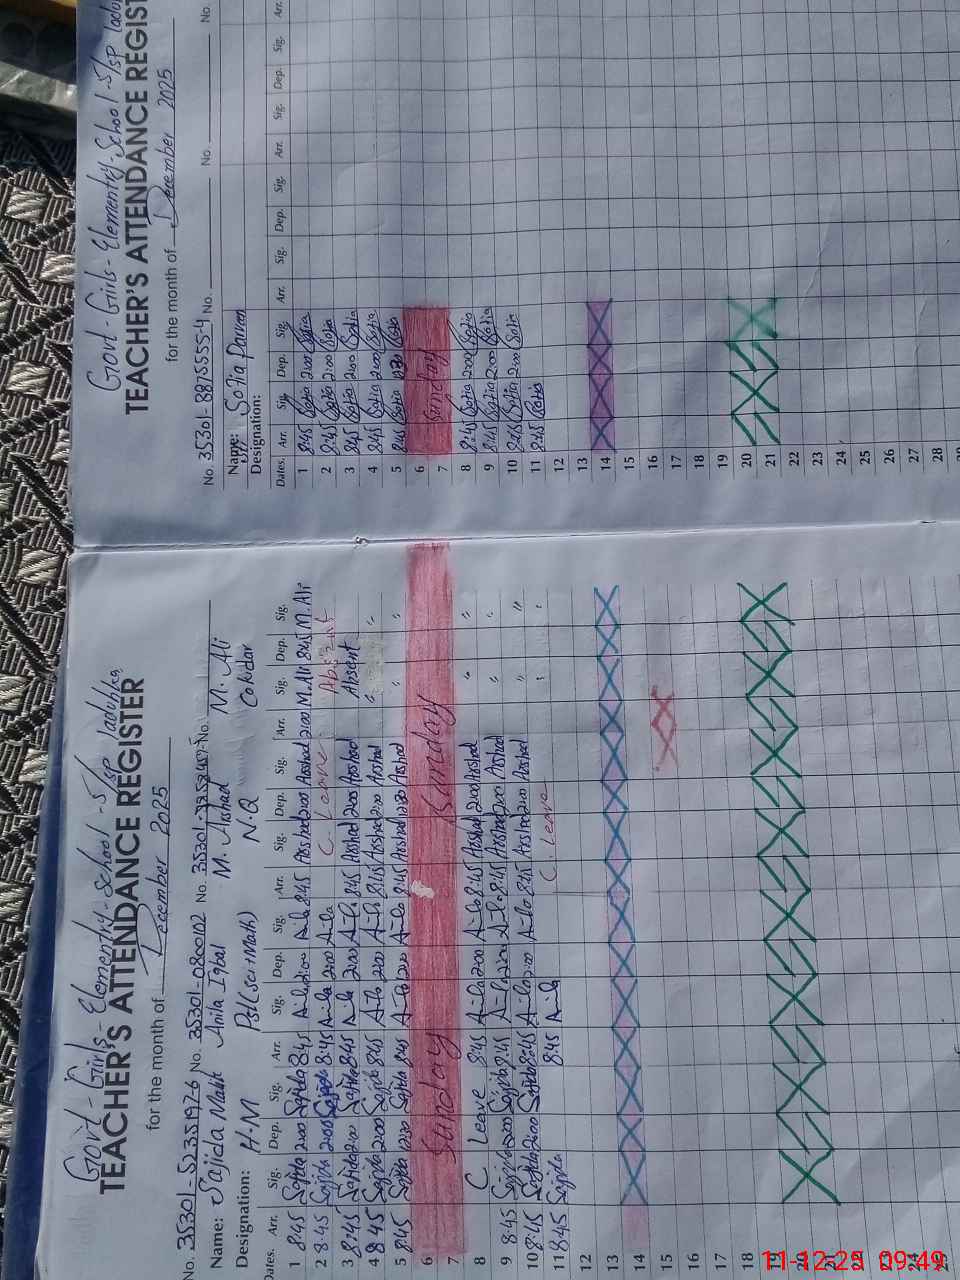 Govt-Girls-Elementry-School-5/SP ladhu
TEACHER'S ATTENDANCE REGISTER
for the month of December 2025
No. 35301-5235192-6 No. 35301-0800102 No.
Name: Sajida Malik Anila Iqbal M. Arshad M. Ali
Designation: H.M Pst(sci+Math) N.Q Cokidar
Dates. Arr. Sig. Dep. Sig. Arr. Sig. Dep. Sig. Arr. Sig. Dep. Sig. Arr. Sig. Dep. Sig.
1 8:45 Sajida 2:00 Sajida 8:45 Anila 2:00 Anila 8:45 Arshad 2:00 Arshad 2:00 M.Ali 8:45 M.Ali
2 8:45 Sajida 2:00 Sajida 8:45 Anila 2:00 Anila C. Leave Absent
3 8:45 Sajida 2:00 Sajida 8:45 Anila 2:00 Anila 8:45 Arshad 2:00 Arshad Absent
4 8:45 Sajida 2:00 Sajida 8:45 Anila 2:00 Anila 8:45 Arshad 2:00 Arshad " "
5 8:45 Sajida 12:30 Sajida 8:45 Anila 12:30 Anila 8:45 Arshad 12:30 Arshad " "
6 Sunday Sunday
7
8 C Leave 8:45 Anila 2:00 Anila 8:45 Arshad 2:00 Arshad " "
9 8:45 Sajida 2:00 Sajida 8:45 Anila 2:00 Anila 8:45 Arshad 2:00 Arshad " "
10 8:45 Sajida 2:00 Sajida 8:45 Anila 2:00 Anila 8:45 Arshad 2:00 Arshad " "
11 8:45 Sajida 8:45 Anila C. Leave " "
12
13
14
15
16
17
18
19
20
21
22
23
24
25
Govt-Girls-Elementry-School-5/SP ladhu
TEACHER'S ATTENDANCE REGIST
for the month of December 2025
No. 35301-8875555-4 No. No. No.
Name: Sofia Parven
Designation:
Dates. Arr. Sig. Dep. Sig. Arr. Sig. Dep. Sig. Arr. Sig. Dep. Sig. Arr.
1 8:45 Sofia 2:00 Sofia
2 8:45 Sofia 2:00 Sofia
3 8:45 Sofia 2:00 Sofia
4 8:45 Sofia 2:00 Sofia
5 8:45 Sofia 12:30 Sofia
6 Sunday
7
8 8:45 Sofia 2:00 Sofia
9 8:45 Sofia 2:00 Sofia
10 8:45 Sofia 2:00 Sofia
11 8:45 Sofia
12
13
14
15
16
17
18
19
20
21
22
23
24
25
26
27
28
29
11-12-25 09:49